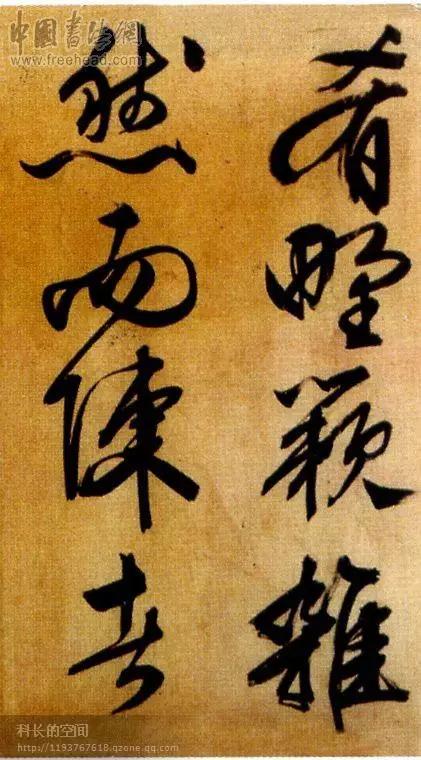 中國書法網
www.freehead.com
肴野蔌雜
然而陳者
科长的空间
http://1193767618.qzone.qq.com